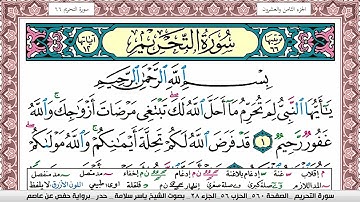 الجزء الثامن والعشرون
سورة التحريم ٦٦
سُورَةُ التَّحْرِيمِ
بِسْمِ ٱللَّهِ ٱلرَّحْمَٰنِ ٱلرَّحِيمِ
يَٰٓأَيُّهَا ٱلنَّبِىُّ لِمَ تُحَرِّمُ مَآ أَحَلَّ ٱللَّهُ لَكَ ۖ تَبْتَغِى مَرْضَاتَ أَزْوَٰجِكَ ۚ وَٱللَّهُ
غَفُورٌ رَّحِيمٌ ١ قَدْ فَرَضَ ٱللَّهُ لَكُمْ تَحِلَّةَ أَيْمَٰنِكُمْ ۚ وَٱللَّهُ مَوْلَىٰكُمْ ۖ
سورة التحريم _ الصفحة ٥٦٠ _ الحزب ٥٦ _ الجزء ٢٨ _ بصوت الشيخ ياسر سلامة _ حدر _ برواية حفص عن عاصم